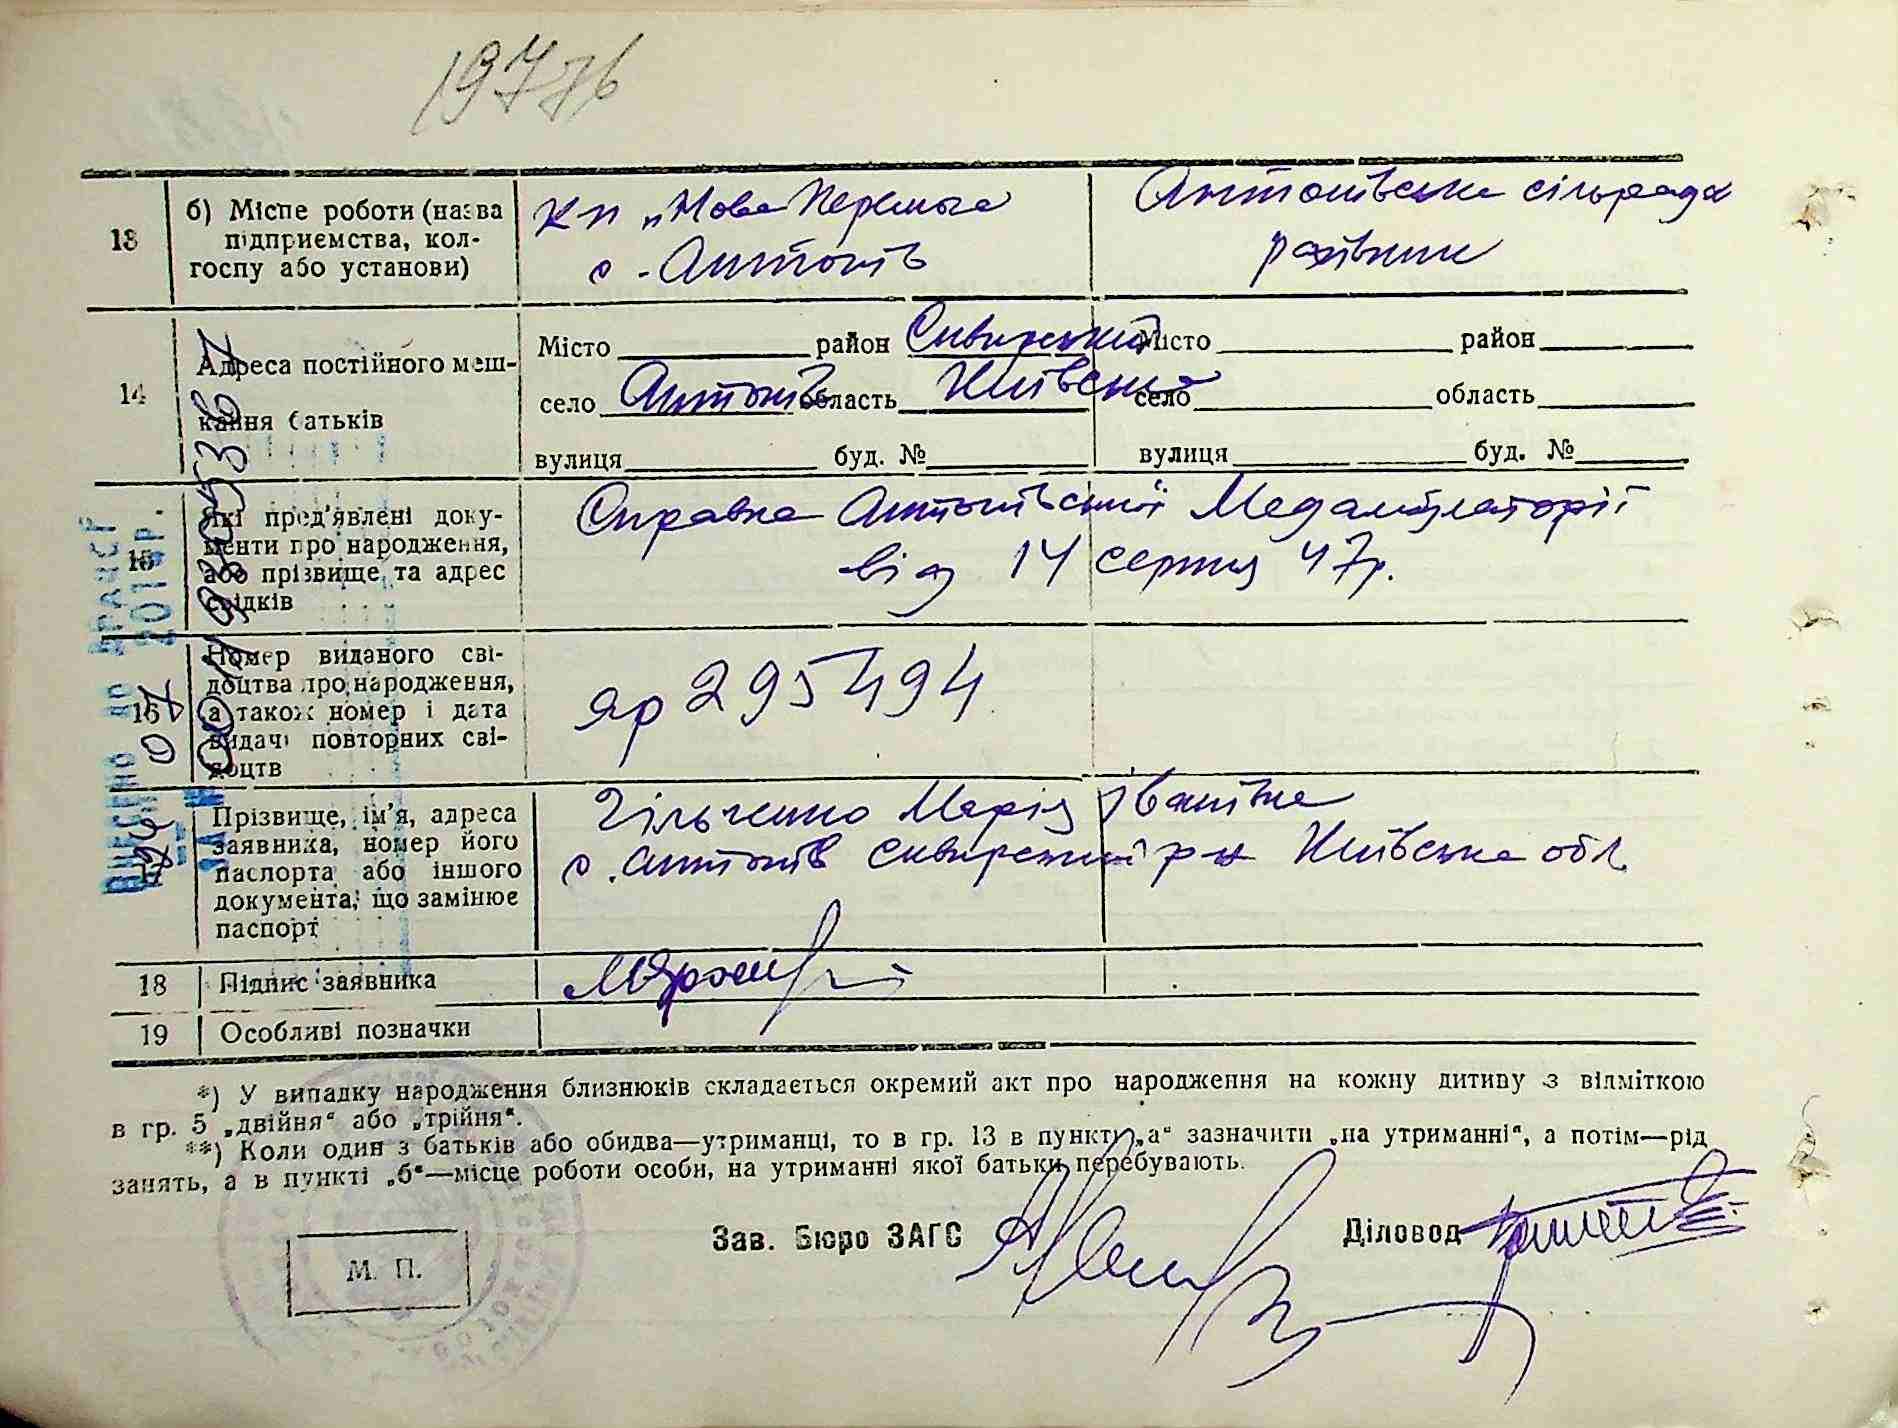 1977б
13
б) Місце роботи (назва
підприємства, кол-
госпу або установи)
кп „Нова Перемога
с. Антонів
Антонівська сільрада
рахівник
14
Адреса постійного меш-
кання батьків
Місто район Сквирський
село Антонів область Київська
вулиця буд. №
Місто район
село область
вулиця буд. №
15
Які пред'явлені доку-
менти про народження,
або прізвище та адрес
свідків
Справка Антонівської Медамбулаторії
від 14 серпня 47р.
16
Номер виданого сві-
доцтва про народження,
а також номер і дата
видачі повторних сві-
доцтв
яр 295494
17
Прізвище, ім'я, адреса
заявника, номер його
паспорта або іншого
документа, що замінює
паспорт
Гільченко Марія Іванівна
с. Антонів Сквирський р-н Київська обл.
18
Підпис заявника
19
Особливі позначки
ВНЕСЕНО ДО ДРАЦСГ
201 р.
ЗА №
*) У випадку народження близнюків складається окремий акт про народження на кожну дитину з відміткою
в гр. 5 „двійня“ або „трійня“.
**) Коли один з батьків або обидва—утриманці, то в гр. 13 в пункті „а“ зазначити „на утриманні“, а потім—рід
занять, а в пункті „б“—місце роботи особи, на утриманні якої батьки перебувають.
Зав. Бюро ЗАГС
Діловод
М. П.